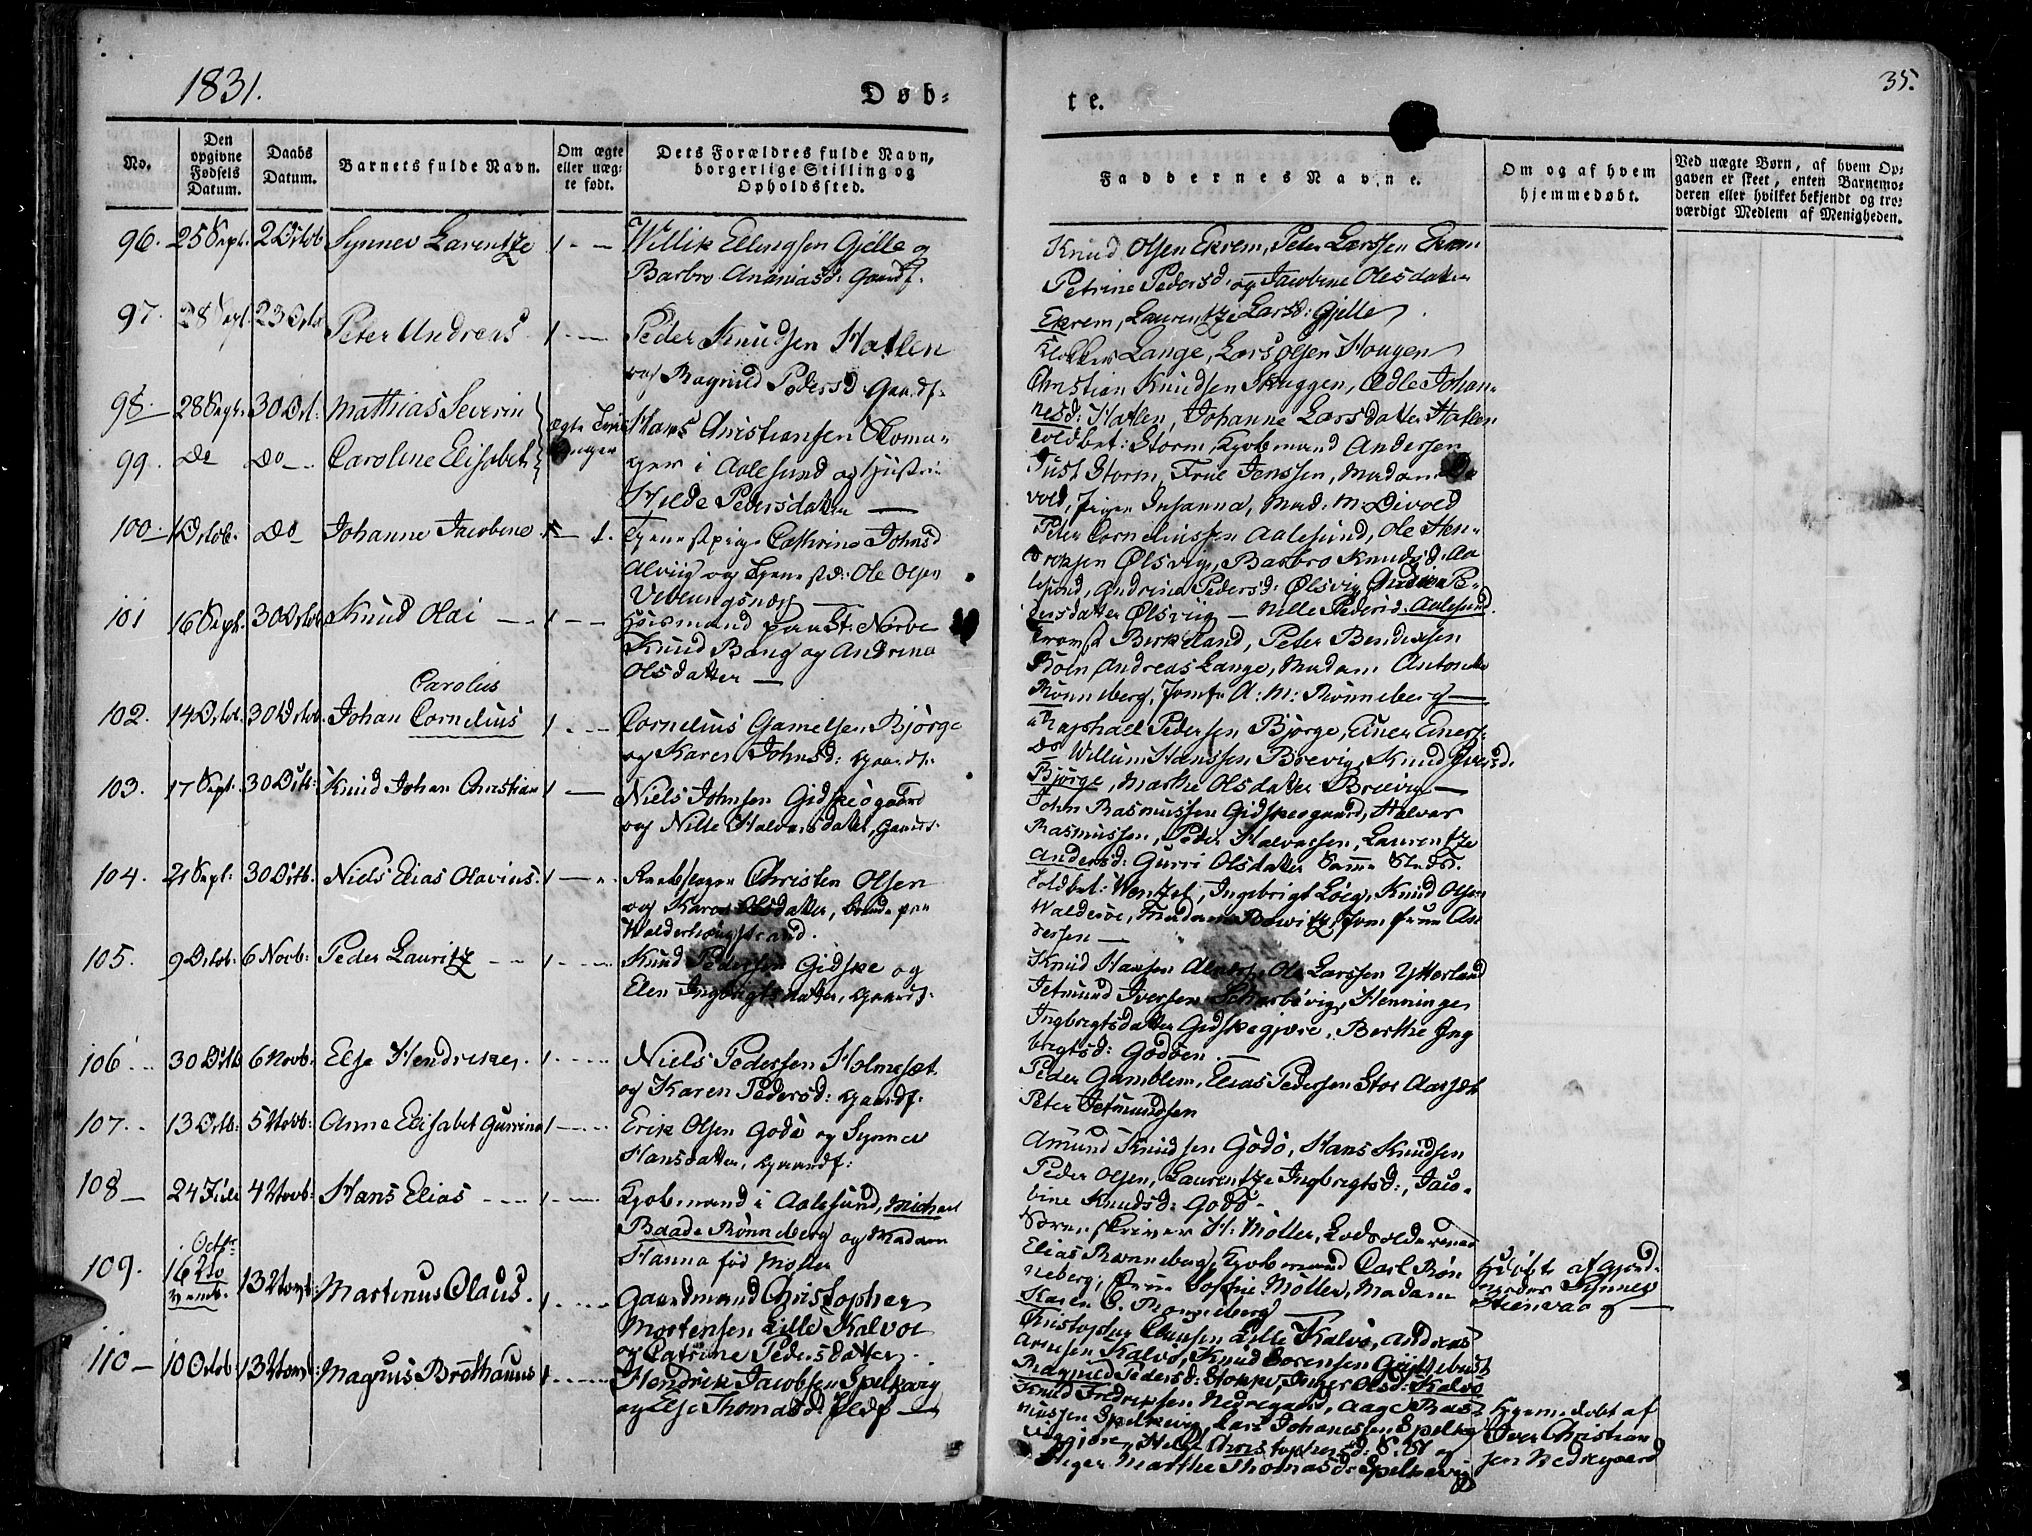 1831.
Døb-
te.
35.
No.
Den opgivne Fødsels Datum.
Daabs Datum.
Barnets fulde Navn.
Om ægte eller uæg-te født.
Dets Forældres fulde Navn, borgerlige Stilling og Opholdssted.
Faddernes Navne.
Om og af hvem hjemmedøbt.
Ved uægte Børn, af hvem Op-
gaven er skeet, enten Barnemo-
deren eller hvilket bekjendt og tro-
værdigt Medlem af Menigheden.
96. 25 Sept. 2 Octob Synnev Larentze 1 - -
Willik Ellingsen Gjelle og
Barbro Ananiasd: Gaardf.
Knud Olsen Ekrem, Peter Larssen Ekrem
Petrine Pedersd. og Jacobine Olesdatter
Ekrem, Laurentze Larsd: Gjelle
97. 28 Sept. 23 Octb Peter Andreas 1 - -
Peder Knudsen Hatlen
og Ragnild Pedersd Gaardf.
Klokker Lange, Lars Olsen Hougen
Christian Knudsen Skuggen, Edle Johan-
nesd: Hatlen, Johanne Larsdatter Hatlen
98. 28 Sept. 30 Oct: Mathias Severin
99. Do Do - Caroline Elisabet
ægte
Hans Christiansen Skoma-
ger i Aalesund og Hustru
Hilde Pedersdatter
Toldbet: Storm, Kjøbmand Andersen
Just Storm, Frue Jenssen, Madam De
vold, Susanna, Mad: M. Devold
100 - 1 Octob. Do Johanne Jacobine
Tjenestpige Cathrine Johnsd
Alviig og Tjenestd: Ole Olsen
Veblungsnæs
Peter Corneliussen Aalesund, Ole Hen-
driksen Ølsvig, Barbro Knudsd. Aa
lesund, Andrine Pedersd: Ølsvig,
dersdatter Ølsviig - Nille Pedersd. Aalesund.
101 16 Sept. 30 Octob Knud Olai - - 1 - -
Huusmand paa St: Nørve
Knud Bang og Andrina
Olsdatter -
Berkeland, Peter Bendixsen
Andreas Lange, Madam Antonette
Rønneberg, Jomfr A: M: Rønneberg
Carolus
102. 14 Octob. 30 Octob. Johan Cornelius 1 - -
Cornelius Gamelsen Bjørge
og Karen Johnsd: Gaardf.
Raphael Pedersen Bjørge, Einer Einers.
Do Willum Hanssen Brevig, Knud
Bjørge, Marthe Olsdatter Breivig -
103. 17 Sept. 30 Octb: Knud Johan Christian 1 -
Niels Johnsen Gidskeøgaard
og Nille Halvorsdatter, Gaardf.
John Rasmussen Gidskeøgaard, Halvor
Rasmussen, Peder Halvorsen, Laurentze
Andersd: Gurri Olsdatter Samme Steds.
104. 21 Sept. 30 Octb: Niels Elias Olavius. 1 - -
Christen Olsen
og Karen Olsdatter, paa
Walderhoug Strand.
Toldbet: Wentzel, Ingebrigt Löeg, Knud Olsen
Walderöe, Madam Jomfrue An
dersen -
105. 9 Octob: 6 Novb: Peder Lauritz - - 1 - -
Knud Pedersen Gidske og
Elen Ingbrigtsdatter, Gaardf.
Knud Hansen Alnes, Ole Larssen Ytterland
Jetmund Iversen Skarbövig, Henninge
Ingbregtsdatter Gidskegjære, Berthe Ing
bregtsd: Godöen -
106. 30 Octb 6 Novb: Else Hendrikke. 1 - -
Niels Pedersen Holmesæt
og Karen Pedersd: Gaardf.
Peder Gamblem, Elias Pedersen Stor Aarsæt
Peter Jetmundsen
107. 13 Octb: 5 Novb: Anne Elisabet Gurrina 1 - -
Erik Olsen Godö og Synnev
Hansdatter, Gaardf:
Amund Knudsen Godö, Hans Knudsen
Peder Olsen, Laurentze Ingbregtsd:, Jaco-
bine Knudsd: Godö -
108 - 24 4 Novb: Hans Elias - - 1 - -
Kjøbmand i Aalesund, Michael
Baade Rönneberg og Madam
Hanna fød Møller
Sorenskriver H: Møller, Lodsolderman
Elias Rønneberg, Kjøbmand Carl Røn
neberg, Frue Sophie Møller, Madam
Karen C. Rønneberg -
Octbr
109. 16 No
vemb. 13 Novb: Martinus Olaus. 1 - -
Gaardmand Christopher
Mortensen Lille Kalvöe
og Catrine Pedersdatter.
Christopher Clausen Lille Kalvö, Andreas
Arnesen Kalvö, Knud Sörensen
Ragnild Pedersd: Stokke, Olsd: Kalvö
Hdöbt af Gjord-
moder Synnev
Steenvaag -
110 - 10 Octob: 13 Novb: Magnus Brothanus 1 - -
Hendrik Jacobsen Spelkevig
og Else Thomasd:
Knud Fredriksen Nedregaard, Aage Ras-
mussen Spelkevig, Lars Johanessen Spelke
Christophersd:
Marthe Thomasd: Spelkevig
Hjemmedøbt af
Iver Christian
sen Nedregaard